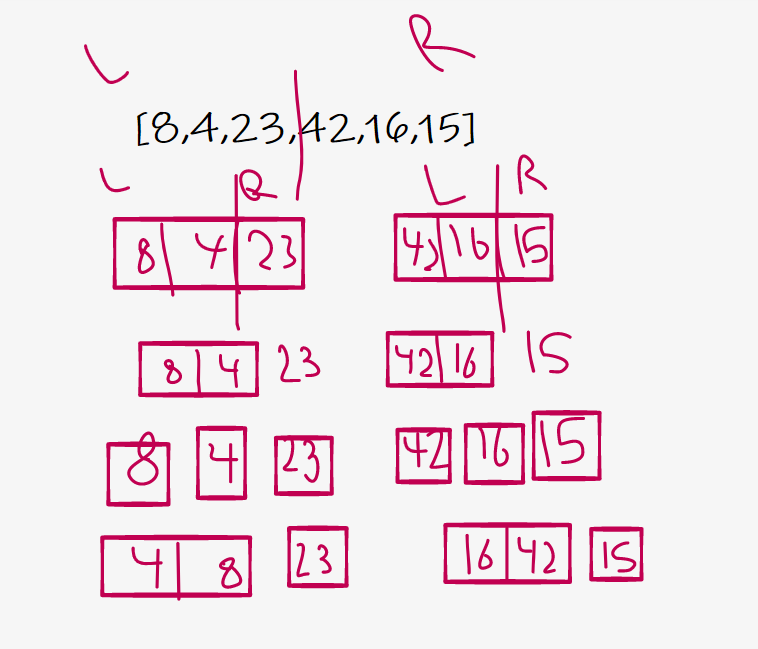 L R
[8,4,23,42,16,15]
L R L R
8 4 23 42 16 15
8 4 23 42 16 15
8 4 23 42 16 15
4 8 23 16 42 15